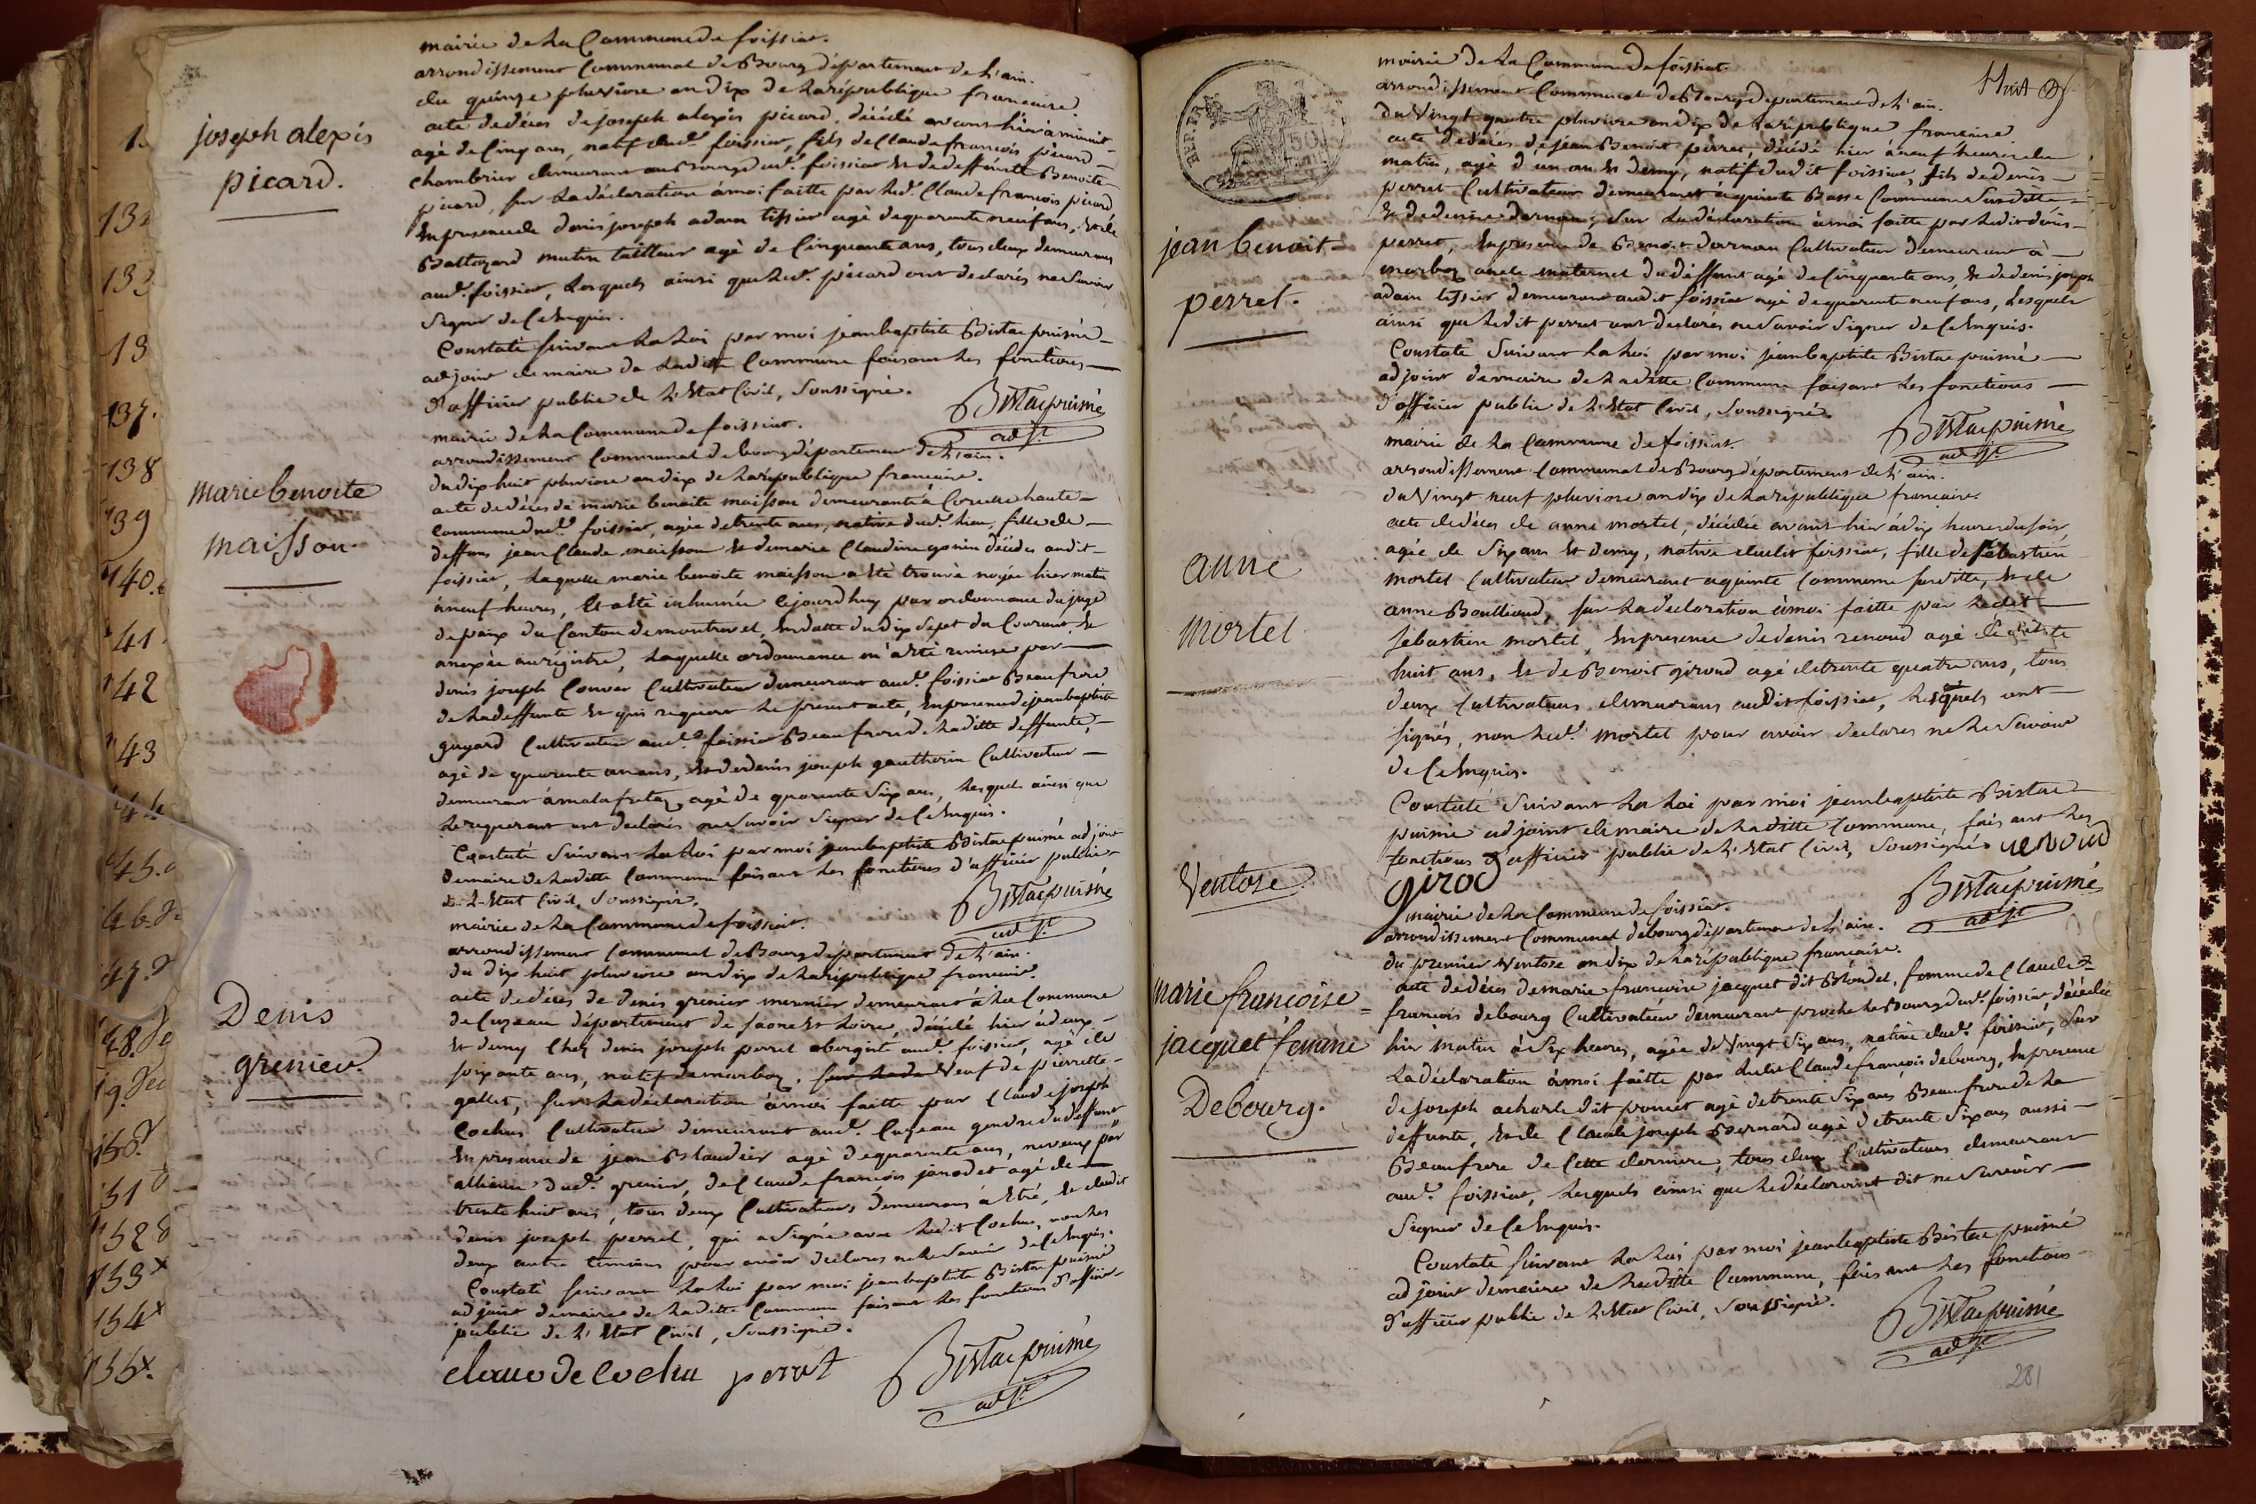 joseph alexis
picard.
mairie de la Commune de foissiat.
arrondissement Communal de Bourg département de l'ain.
du quinze pluviôse an dix de la république francaise
acte de décès de joseph alexis picard, décédé avant hier à minuit
agé de Cinq ans, natif dud.t foissiat, fils de Claude francois picard
chambrier demeurant au Bourg dud.t foissiat et de deffunte Benoite
picard, sur la déclaration à moi faitte par led.t Claude francois picard
En presence de denis joseph adam tissier agé de quarante neuf ans, et de
Baltazard mutin tailleur agé de Cinquante ans, tous deux demeurans
aud.t foissiat, Lesquels ainsi que led.t picard ont declarés ne Savoir
Signer de Ce Enquis.
Constaté suivant la Loi par moi jean baptiste Bistac puisné
adjoint de maire de laditte Commune faisant les fonctions
d'officier public de l'Etat Civil, soussigné.
Bistac puisné
adj.t
marie benoite
maisson
mairie de la Commune de foissiat.
arrondissement Communal de bourg département de l'ain.
du dix huit pluviose an dix de la république francaise.
acte de décès de marie benoite maisson demeurante à Cormelle haute
Commune dud.t foissiat, agée de trente ans, native dud.t lieu, fille de
deffans jean Claude maisson et de marie Claudine gonin décédés audit
foissiat, Laquelle marie benoite maisson a été trouvé noyée hier matin
à neuf heures, Et a été inhumée Cejourd'huy par ordonnance du juge
de paix du Canton de montrevel, En datte du dix sept du Courant, et
anexée au régistre, Laquelle ordonnance m'a été remise par
denis joseph Convert Cultivateur demeurant aud.t foissiat Beaufrere
de la deffunte et qui requiert le present acte, En presence de jean baptiste
guyard Cultivateur aud.t foissiat Beaufrere de laditte deffunte,
agé de quarente un ans, et de denis joseph gautherin Cultivateur
demeurant à malafretaz agé de quarente Six ans, Lesquels ainsi que
Le requerant ont declarés ne Savoir Signer de Ce Enquis.
Constaté Suivant la Loi par moi jean baptiste Bistac puisné adjoint
de maire de laditte Commune faisant les fonctions d'officier public
de l'Etat Civil, Soussigné.
Bistac puisné
adj.t
Denis
grenier
mairie de la Commune de foissiat.
arrondissement Communal de Bourg département de l'ain.
du dix huit pluviose an dix de la république francaise.
acte de décès de denis grenier meunier demeurant à la Commune
de Cuzeau département de saone et Loire, décédé hier à deux
et demy Chez denis joseph perret abergiste aud.t foissiat, agé de
soixante ans, natif de marboz, sur la de Veuf de pierrette
gallet, sur la déclaration à moi faitte par Claude joseph
Cochas Cultivateur demeurant aud.t Cuzeau gendre du deffunt
En presence de jean Blaudier agé de quarente ans, neveux par
alliance dud.t grenier, de Claude francois janodet agé de
trente huit ans, tous deux Cultivateurs demeurans à Etré, et dudit
denis joseph perret, qui a Signé avec ledit Cochas, non les
deux autre temoins pour avoir declarés ne le Savoir de Ce Enquis.
Constaté Suivant la Loi par moi jean baptiste Bistac puisné
adjoint de maire de laditte Commune faisant les fonctions d'officier
public de l'Etat Civil, Soussigné.
claude cocha perret Bistac puisné
adj.t
Huit
jean benoit
perret.
mairie de la Commune de foissiat.
arrondissement Communal de Bourg departement de l'ain.
du Vingt quatre pluviose an dix de la république francaise
acte de décès de jean Benoit perret, décédé hier à neuf heures du
matin, agé d'un an et demy, natif dudit foissiat, fils de denis
perret Cultivateur demeurant à quinte Basse Commune Susditte
et de denise darnan, Sur la déclaration à moi faitte par ledit denis
perret, En presence de Benoit darnan Cultivateur demeurant à
marboz oncle maternel du deffunt agé de Cinquante ans, et de denis joseph
adam tissier demeurant audit foissiat agé de quarente neuf ans, Lesquels
ainsi que ledit perret ont declarés ne Savoir Signer de Ce Enquis.
Constaté Suivant la Loi par moi jean baptiste Bistac puisné
adjoint de maire de laditte Commune faisant les fonctions
d'officier public de l'Etat Civil, Soussigné.
Bistac puisné
adj.t
anne
mortel
mairie de la Commune de foissiat.
arrondissement Communal de Bourg département de l'ain.
du Vingt neuf pluviose an dix de la république francaise.
acte de décès de anne mortel, décédée avant hier à dix heures du soir
agée de Six ans et demy, native dudit foissiat, fille de sébastien
mortel Cultivateur demeurant a quinte Commune susditte, et de
anne Boulliand, sur la déclaration à moi faitte par ledit
sebastien mortel, En presence de denis renoud agé de trente
huit ans, et de Benoit giroud agé de trente quatre ans, tous
deux Cultivateurs demeurans audit foissiat, lesquels ont
signés, non led.t mortel pour avoir declarés ne le Savoir
de Ce Enquis.
Constaté Suivant la Loi par moi jean baptiste Bistac
puisné adjoint de maire de laditte Commune, faisant les
fonctions d'officier public de l'Etat Civil, Soussigné renoud
girod
Bistac puisné
adj.t
Ventose
marie françoise
jacquet femme
Debourg.
mairie de la Commune de foissiat.
arrondissement Communal de bourg departement de l'ain.
du premier Ventose an dix de la république francaise.
acte de décès de marie francoise jacquet dit Blondel, femme de Claude
francois debourg Cultivateur demeurant proche le Bourg dud.t foissiat, décédée
hier matin à Six heures, agée de Vingt Six ans, native dud.t foissiat, Sur
la déclaration à moi faitte par ledit Claude francois debourg, En presence
de joseph acharle dit poncet agé de trente Six ans Beaufrere de la
deffunte, et de Claude joseph Bernard agé de trente Six ans aussi
Beaufrere de Cette derniere, tous deux Cultivateurs demeurant
aud.t foissiat, Lesquels ainsi que le déclarant dit ne Savoir
Signer de Ce Enquis.
Constaté Suivant la Loi par moi jean baptiste Bistac puisné
adjoint de maire de laditte Commune, faisant les fonctions
d'officier public de l'Etat Civil, Soussigné.
Bistac puisné
adj.t
281
137.
138
139
140.
141
142
143